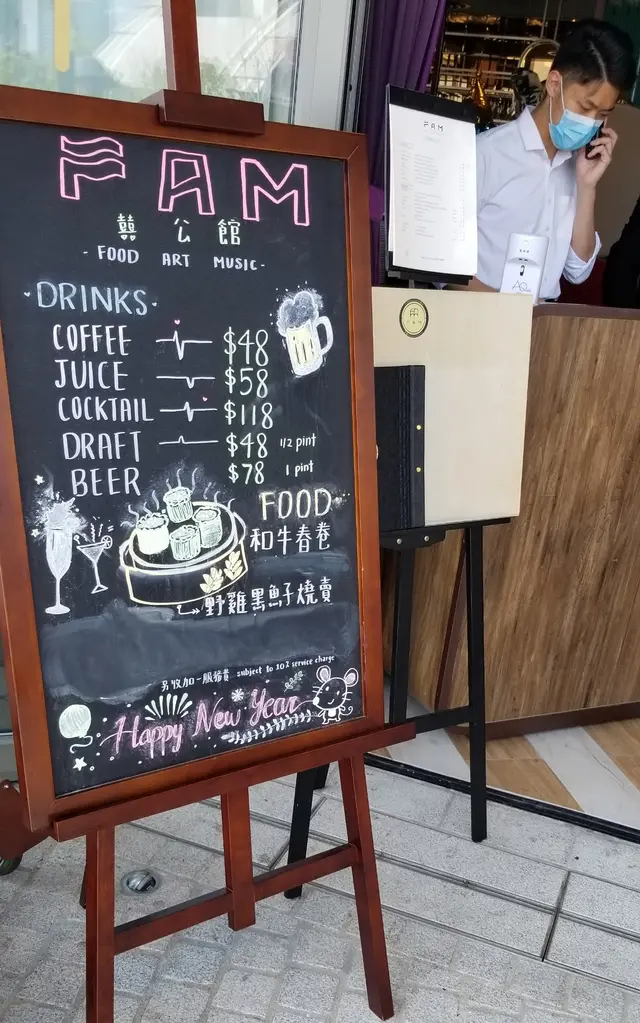 FAM
囍公館
- FOOD ART MUSIC -
· DRINKS ·
COFFEE $48
JUICE $58
COCKTAIL $118
DRAFT $48 1/2 pint
BEER $78 1 pint
FOOD
和牛春卷
野雞黑魚子燒賣
另收加一服務費 subject to 10% service charge
Happy New Year
FAM